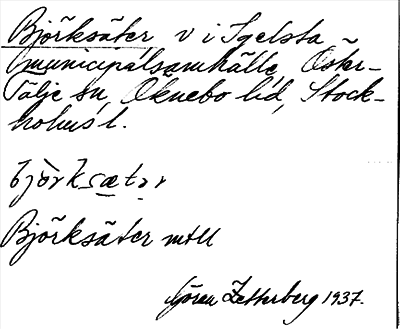 Björksäter v i Igelsta
municipalsamhälle, Öster-
tälje sn, Öknebo hd, Stock-
holms l.
bjö̀rksætər
Björksäter mtll
Göran Zetterberg 1937.